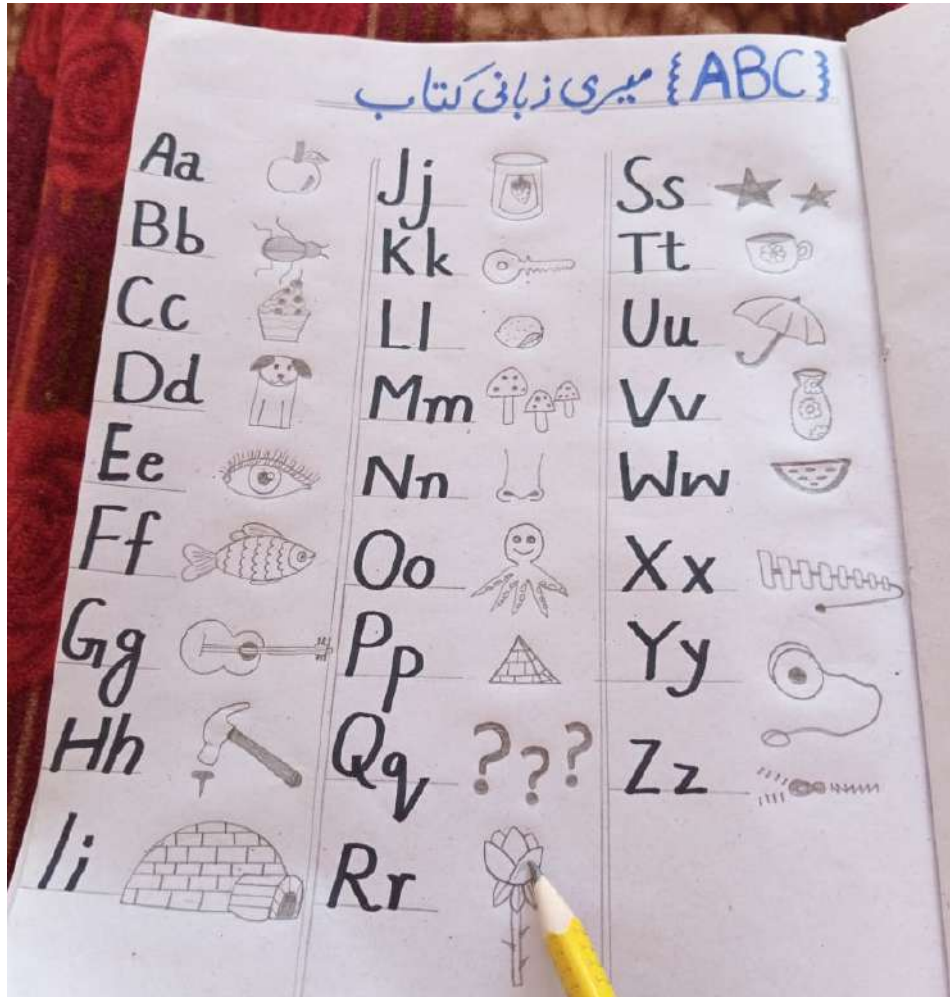 میری زبانی کتاب {ABC}
Aa
Bb
Cc
Dd
Ee
Ff
Gg
Hh
Ii
Jj
Kk
Ll
Mm
Nn
Oo
Pp
Qq ???
Rr
Ss
Tt
Uu
Vv
Ww
Xx
Yy
Zz